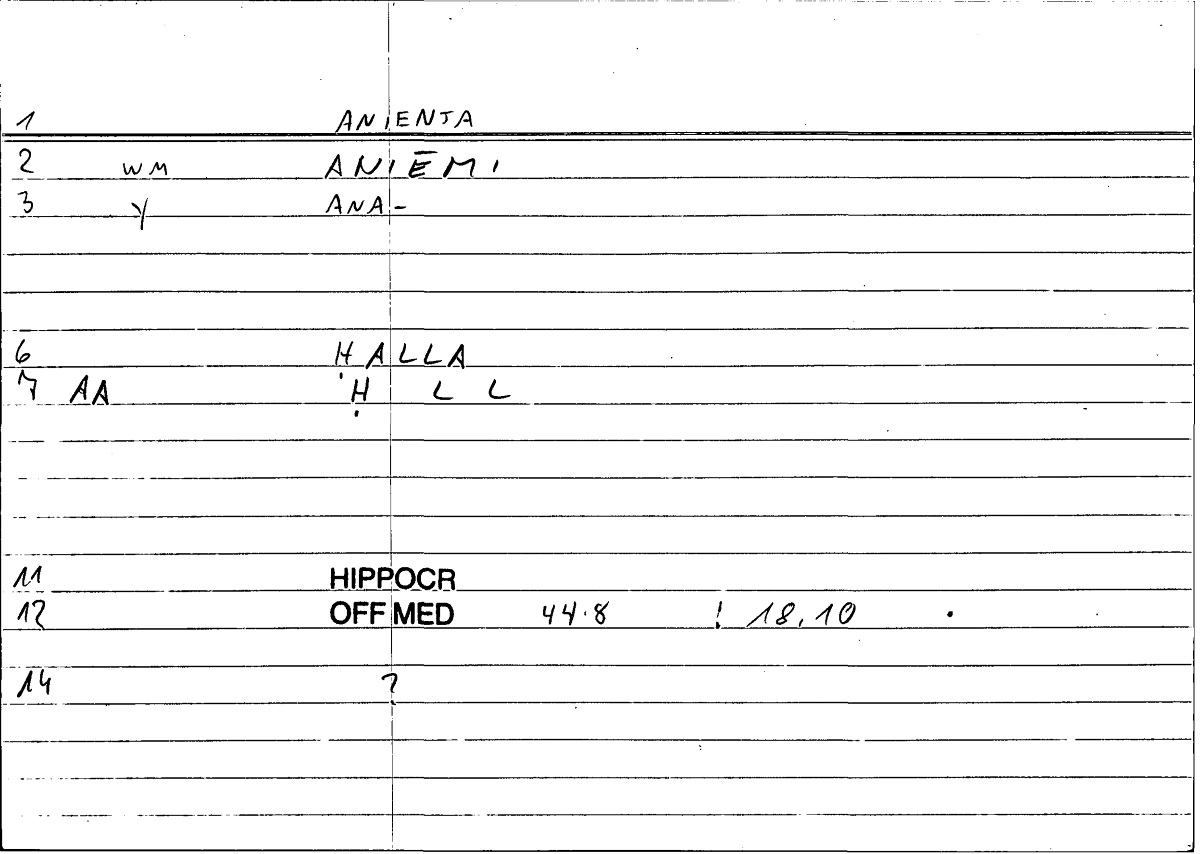 1 ANIENTA
2 WM ANIĒMI
3 Y ANA-
6 HALLA
7 AA H L L
11 HIPPOCR
12 OFF MED 44.8 ! 18,10 .
14 ?